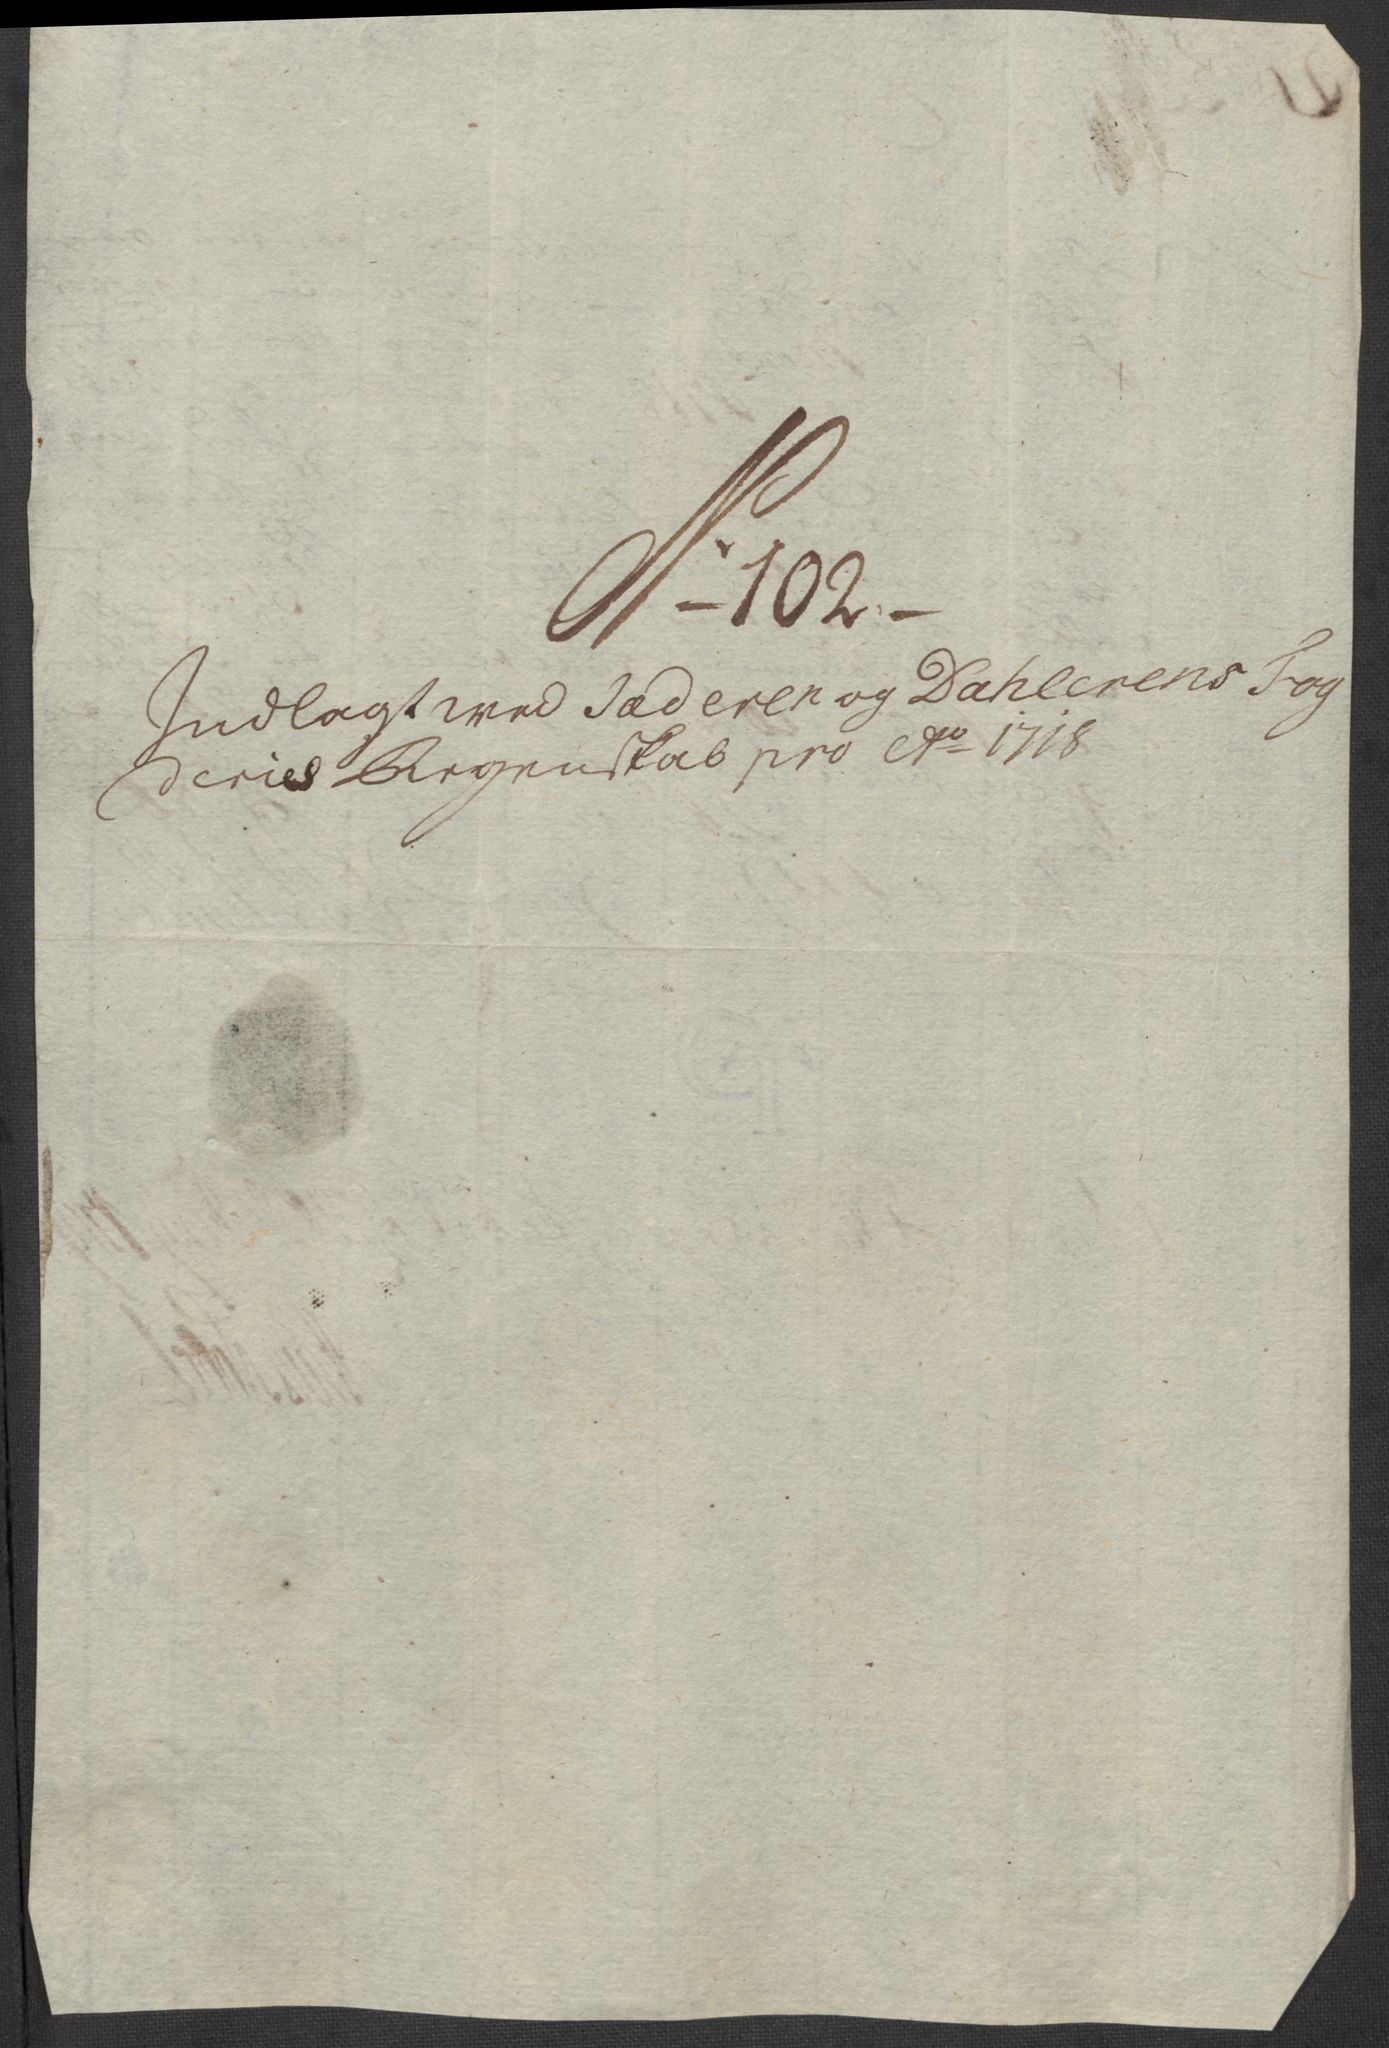 No 102
Indlagt wed Jæderen og Dahlerens Fog
deries Regenskab pro Ao 1718